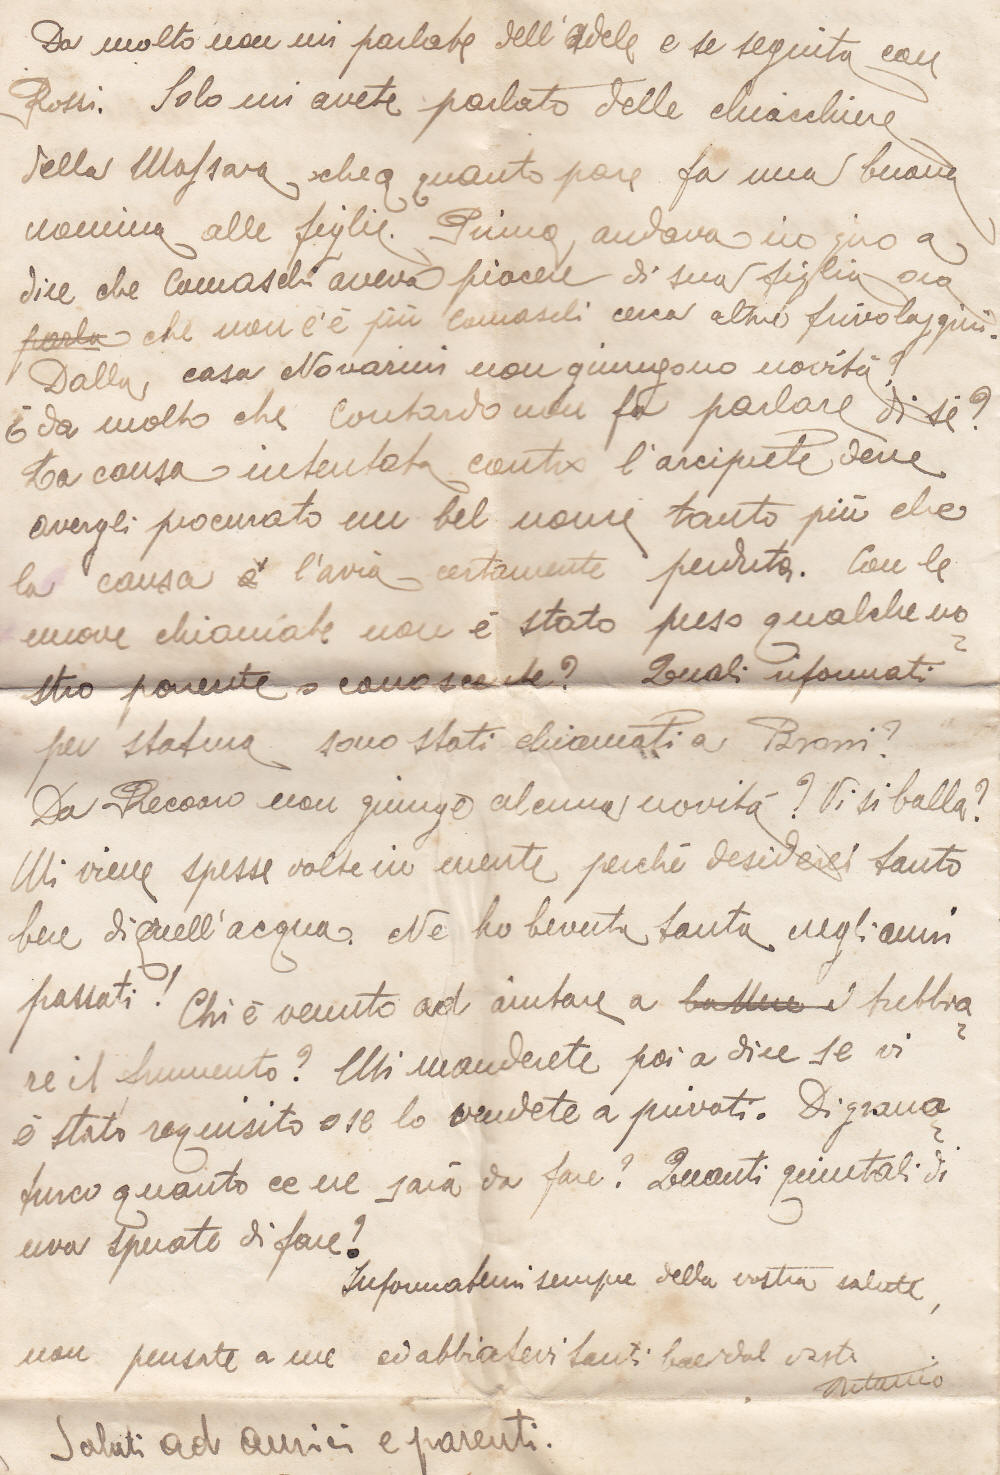 Da molto non mi parlate dell'Adele e se seguita con
Rossi. Solo mi avete parlato delle chiacchiere
della Massara che a quanto pare fa una buona
nomina alle figlie. Prima andava in giro a
dire che Comaschi aveva piacere di sua figlia ora
parla che non c'è più Comaschi cerca altre frivolaggini.
Dalla casa Novarini non giungono novità?
È da molto che Contardo non fa parlare di sè?
La causa intentata contro l'arciprete deve
avergli procurato un bel nome tanto più che
la causa l'avrà certamente perduta. Con le
nuove chiamate non è stato preso qualche no-
stro parente o conoscente? Quali riformati
per statura sono stati chiamati a Broni?
Da Recoaro non giunge alcuna novità? Vi si balla?
Mi viene spesse volte in mente perchè desiderei tanto
bere di quell'acqua. Ne ho bevuta tanta negli anni
passati! Chi è venuto ad aiutare a battere e trebbia-
re il frumento? Mi manderete poi a dire se vi
è stato requisito o se lo vendete a privati. Di grano-
turco quanto ce ne sarà da fare? Quanti quintali di
uva sperate di fare?
Informatemi sempre della vostra salute,
non pensate a me ed abbiatevi tanti baci dal vostro
Antonio
Saluti ad amici e parenti.